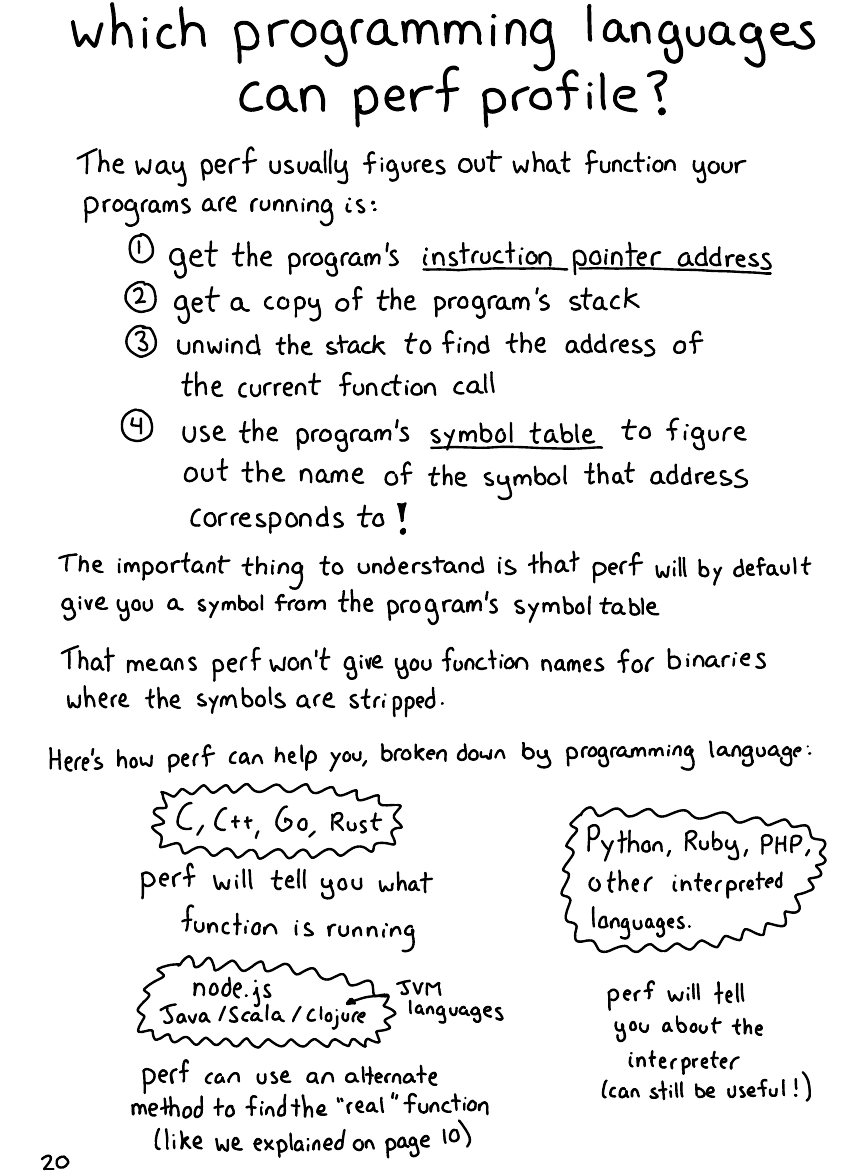 which programming languages
can perf profile?
The way perf usually figures out what function your
programs are running is:
① get the program's instruction pointer address
② get a copy of the program's stack
③ unwind the stack to find the address of
the current function call
④ use the program's symbol table to figure
out the name of the symbol that address
corresponds to!
The important thing to understand is that perf will by default
give you a symbol from the program's symbol table
That means perf won't give you function names for binaries
where the symbols are stripped.
Here's how perf can help you, broken down by programming language:
C, C++, Go, Rust
perf will tell you what
function is running
node.js
Java/Scala/Clojure
JVM
languages
perf can use an alternate
method to find the "real" function
(like we explained on page 10)
Python, Ruby, PHP,
other interpreted
languages.
perf will tell
you about the
interpreter
(can still be useful!)
20